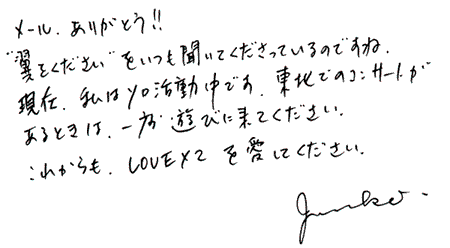 メール、ありがとう!!
"翼をください"をいつも聞いてくださっているのですね。
現在、私はソロ活動中です。東北でのコンサートが
あるときは、一度遊びに来てください。
これからも、LOVE×2を愛してください。
Junko.